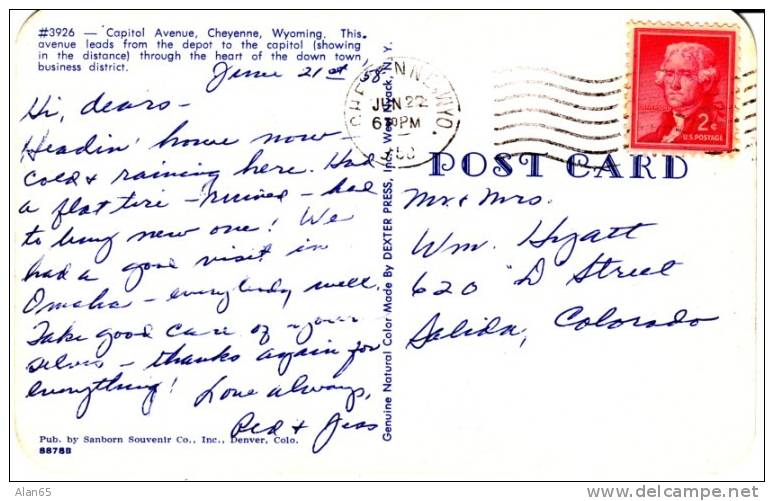 #3926 — Capitol Avenue, Cheyenne, Wyoming. This
avenue leads from the depot to the capitol (showing
in the distance) through the heart of the down town
business district.
June 21st 58
Hi, dears-
Headin' home now -
Cold & raining here. Had
a flat tire - ruined - had
to buy new one! We
had a good visit in
Omaha - everybody well.
Take good care of your
selves - thanks again for
everything! Love always,
Red & Jess
Pub. by Sanborn Souvenir Co., Inc., Denver, Colo.
8878B
Genuine Natural Color Made by DEXTER PRESS, Inc., West Nyack, N. Y.
CHEYENNE, WYO.
JUN 22
6 30 PM
1958
2¢
U.S. POSTAGE
POST CARD
Mr. & Mrs.
Wm. Hyatt
620 "D" Street
Salida, Colorado
Alan65
http://www.delcampe.net